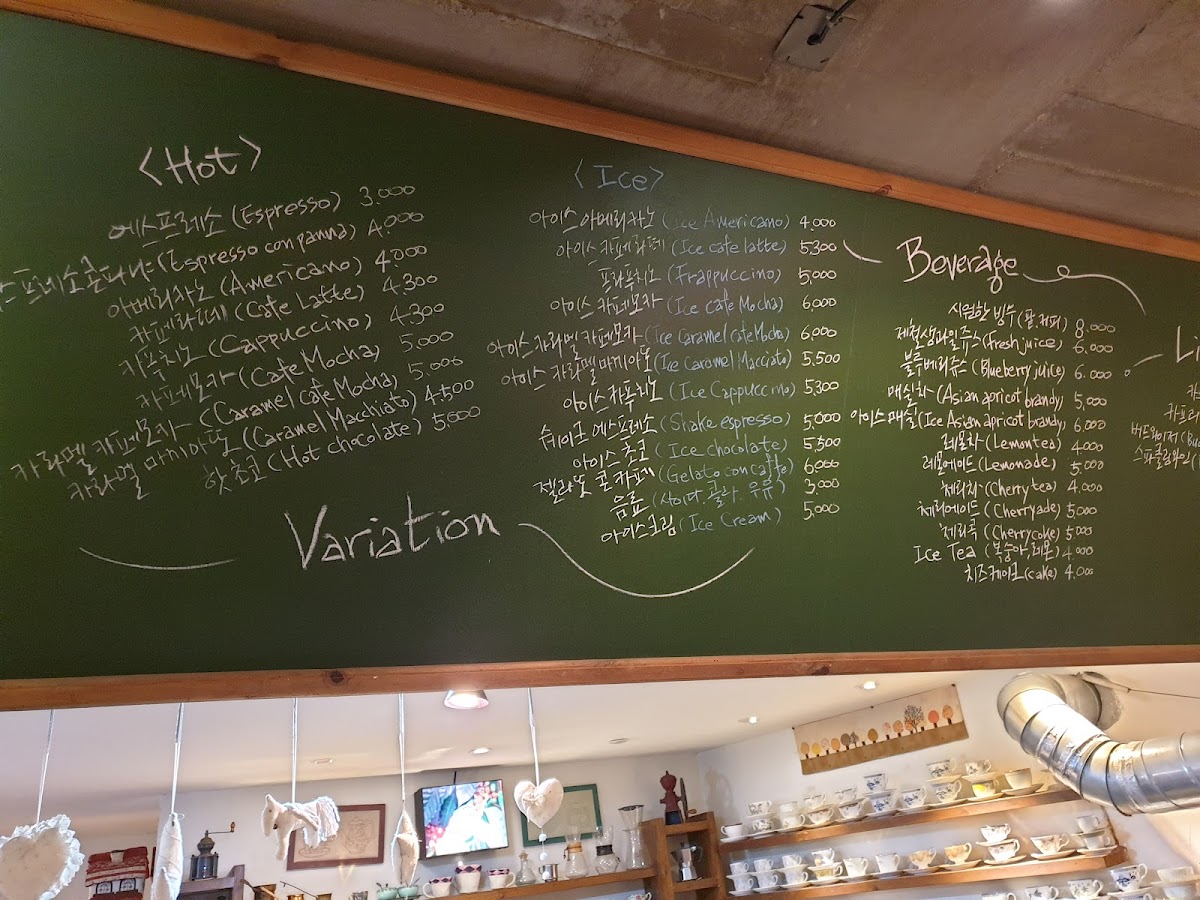 <Hot>
에스프레소 (Espresso) 3.000
스프레소콘파나 (Espresso con panna) 4.000
아메리카노 (Americano) 4.000
카페라떼 (Cafe Latte) 4.300
카푸치노 (Cappuccino) 4.300
카페모카 (Cafe Mocha) 5.000
카라멜 카페모카 (Caramel cafe Mocha) 5.000
카라멜 마끼아또 (Caramel Macchiato) 4.500
핫초코 (Hot chocolate) 5.000
Variation
<Ice>
아이스 아메리카노 (Ice Americano) 4.000
아이스 카페라떼 (Ice cafe latte) 5.300
프라푸치노 (Frappuccino) 5.000
아이스 카페모카 (Ice cafe Mocha) 6.000
아이스 카라멜 카페모카 (Ice Caramel Cafe Mocha) 6.000
아이스 카라멜 마끼아또 (Ice Caramel Macciato) 5.500
아이스 카푸치노 (Ice Cappuccino) 5.300
쉐이크 에스프레소 (Shake espresso) 5.000
아이스 초코 (Ice chocolate) 5.500
젤라또 콘 카페 (Gelato con caffe) 6.000
음료 (사이다. 콜라. 우유) 3.000
아이스크림 (Ice Cream) 5.000
Beverage
시원한 빙수 (팥.커피) 8.000
제철생과일주스 (fresh juice) 6.000
블루베리쥬스 (Blueberry juice) 6.000
매실차 (Asian apricot brandy) 5.000
아이스매실 (Ice Asian apricot brandy) 6.000
레몬차 (Lemon tea) 4.000
레몬에이드 (Lemonade) 5.000
체리차 (Cherry tea) 4.000
체리에이드 (Cherryade) 5.000
체리콕 (Cherry coke) 5.000
Ice Tea (복숭아,레몬) 4.000
치즈케이크 (cake) 4.000
Li
카
카프리
버드와이저 (Bu
스파클링와인 (